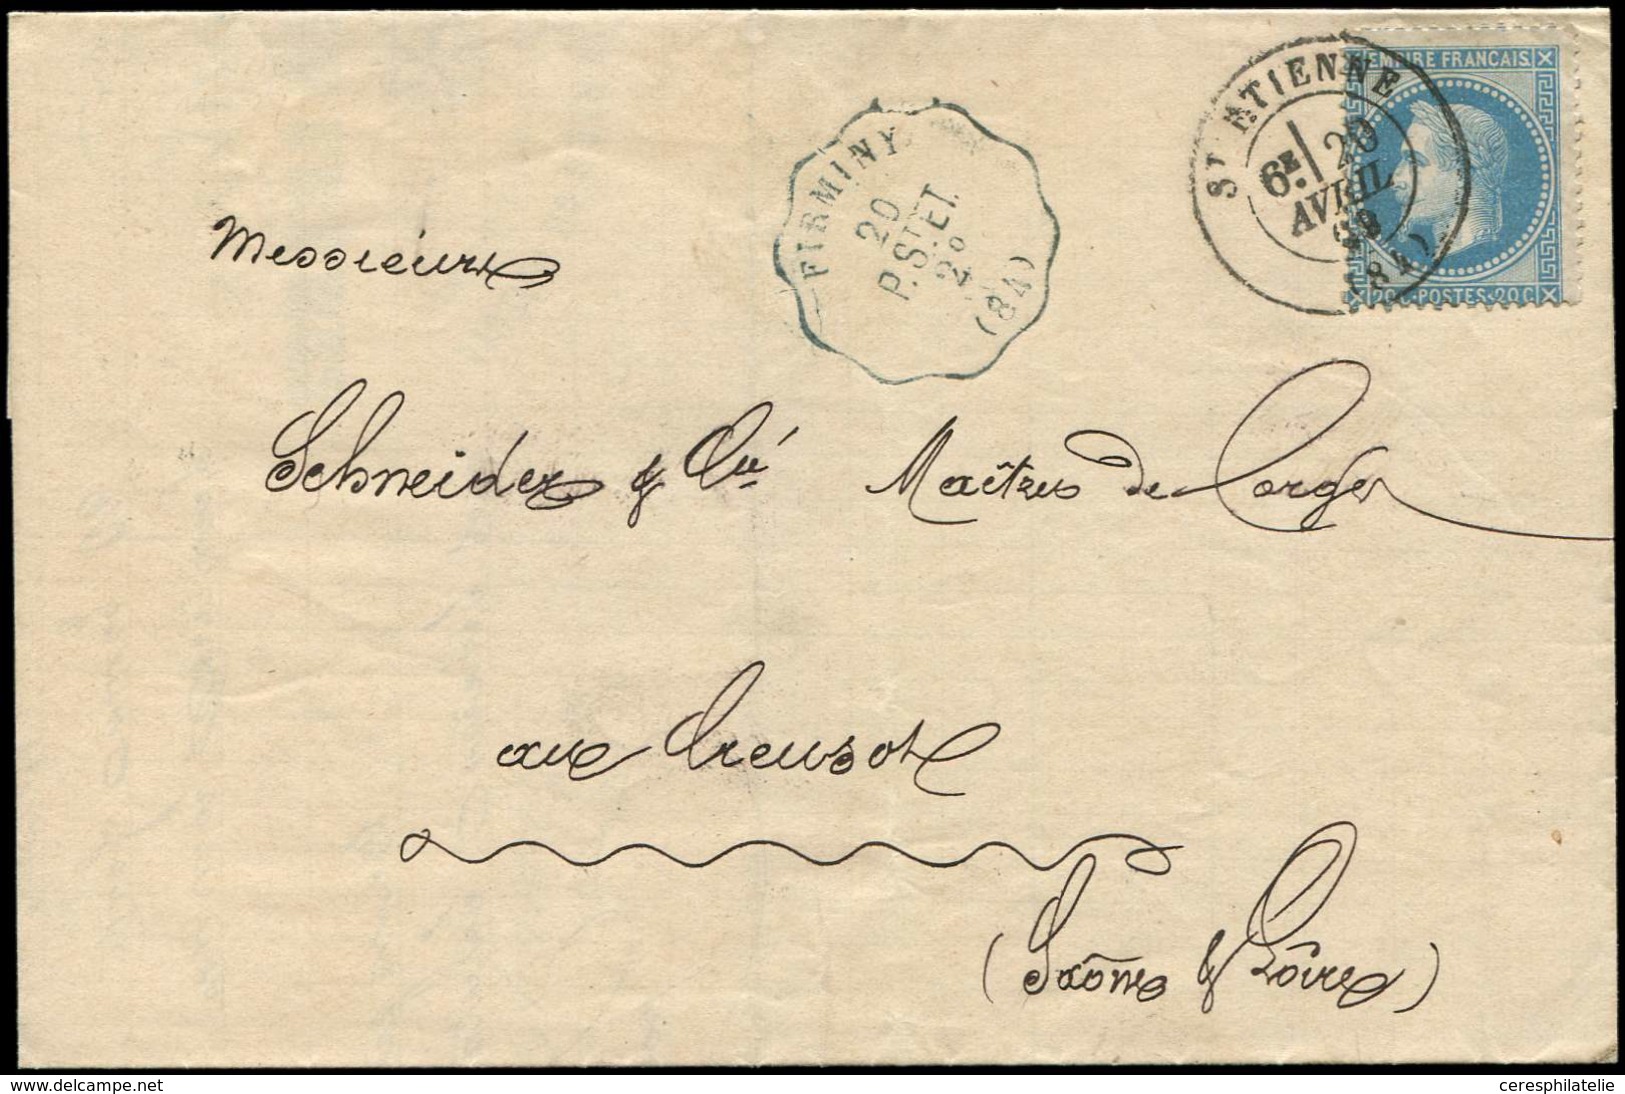 EMPIRE FRANÇAIS.
ST ETIENNE
6E. 20
AVRIL
69
(84)
20C-POSTES-20C
FIRMINY
20
P.ST.ET.
2º
(84)
Messieurs
Schneider & Cie Maîtres de Forges
au Creusot
(Saône & Loire)
www.delcampe.net
ceresphilatelie